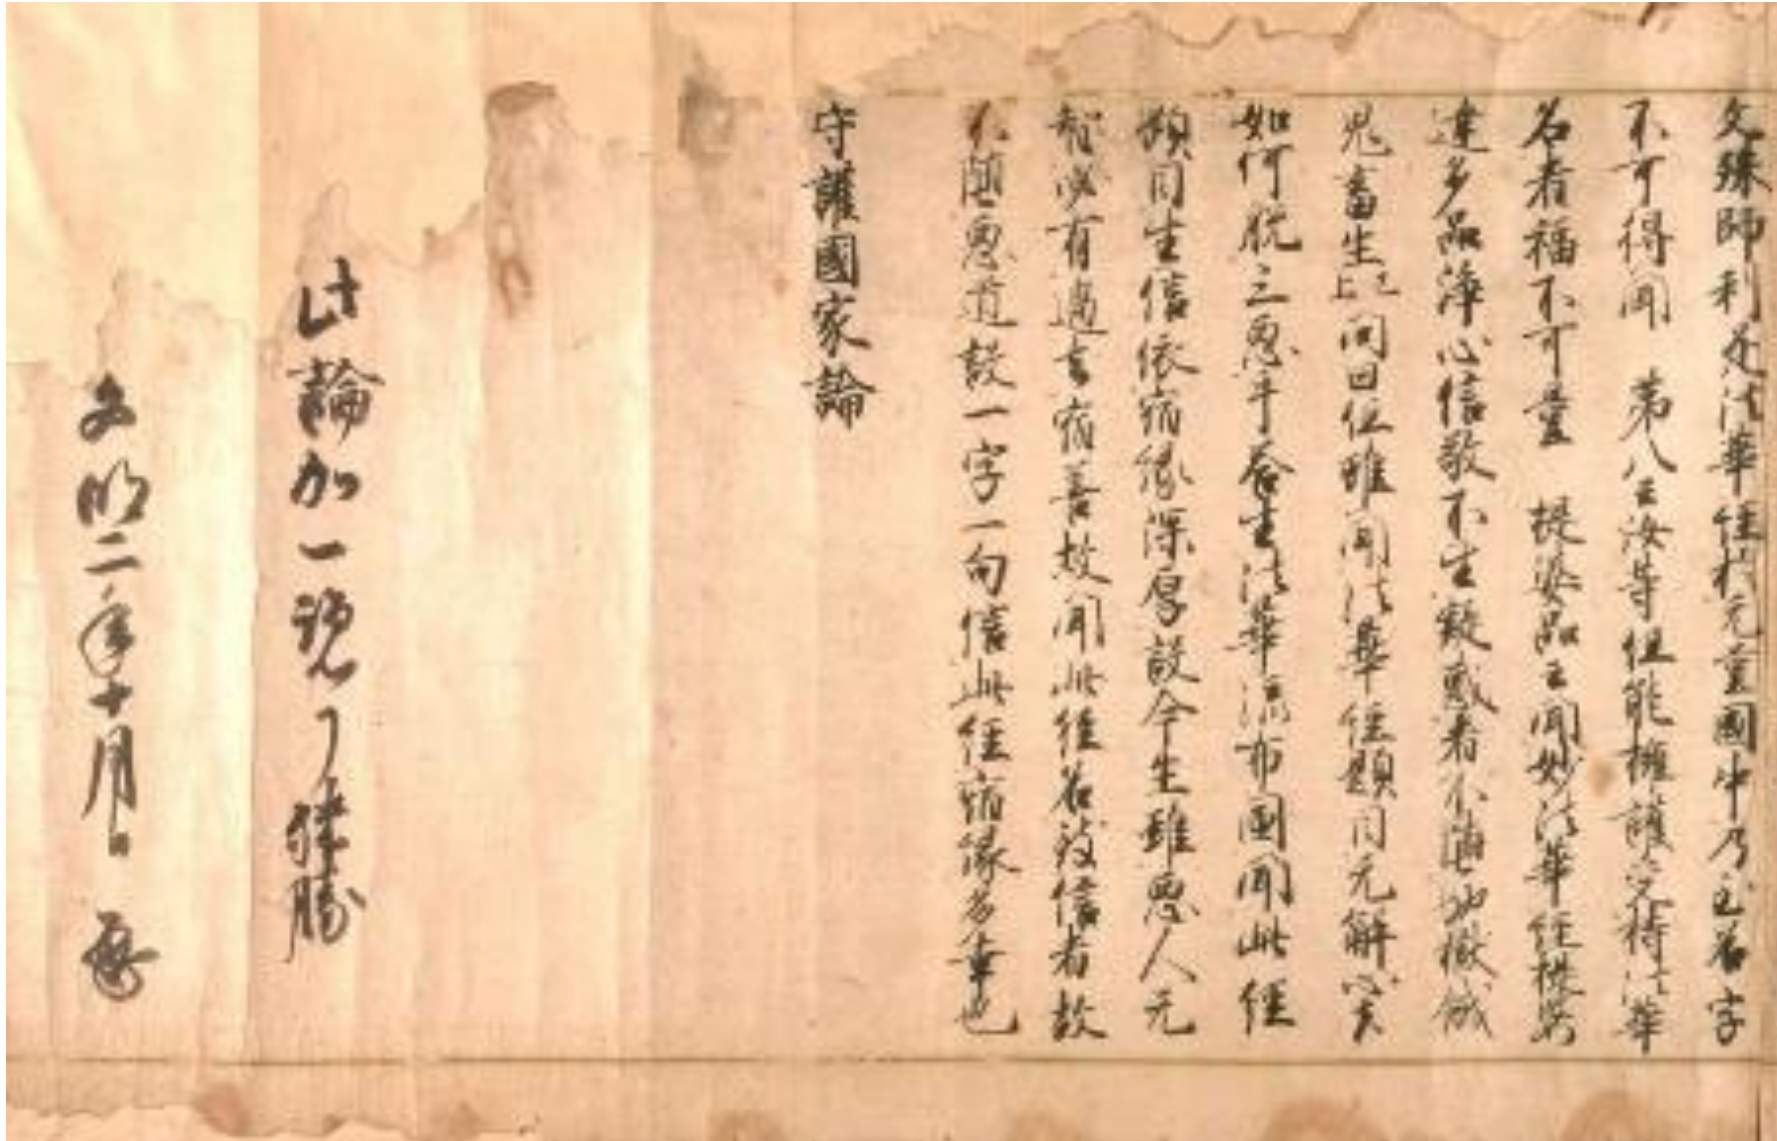 文殊師利是法華経於無量國中乃至名字
不可得聞 第八云汝等但能擁護受持法華
名者福不可量 提婆品云聞妙法華経提婆
達多品浄心信敬不生疑惑者不堕地獄餓
鬼畜生 問曰但雖聞法華経題目无解心者
如何脱三悪乎答生法華流布國聞此経
題目生信依宿縁深厚設今生雖悪人无
智必有過去宿善故聞此経名致信者故
不随悪道設一字一句信此経宿縁多幸也
守護國家論
此論加一覧了
文明二年十月日